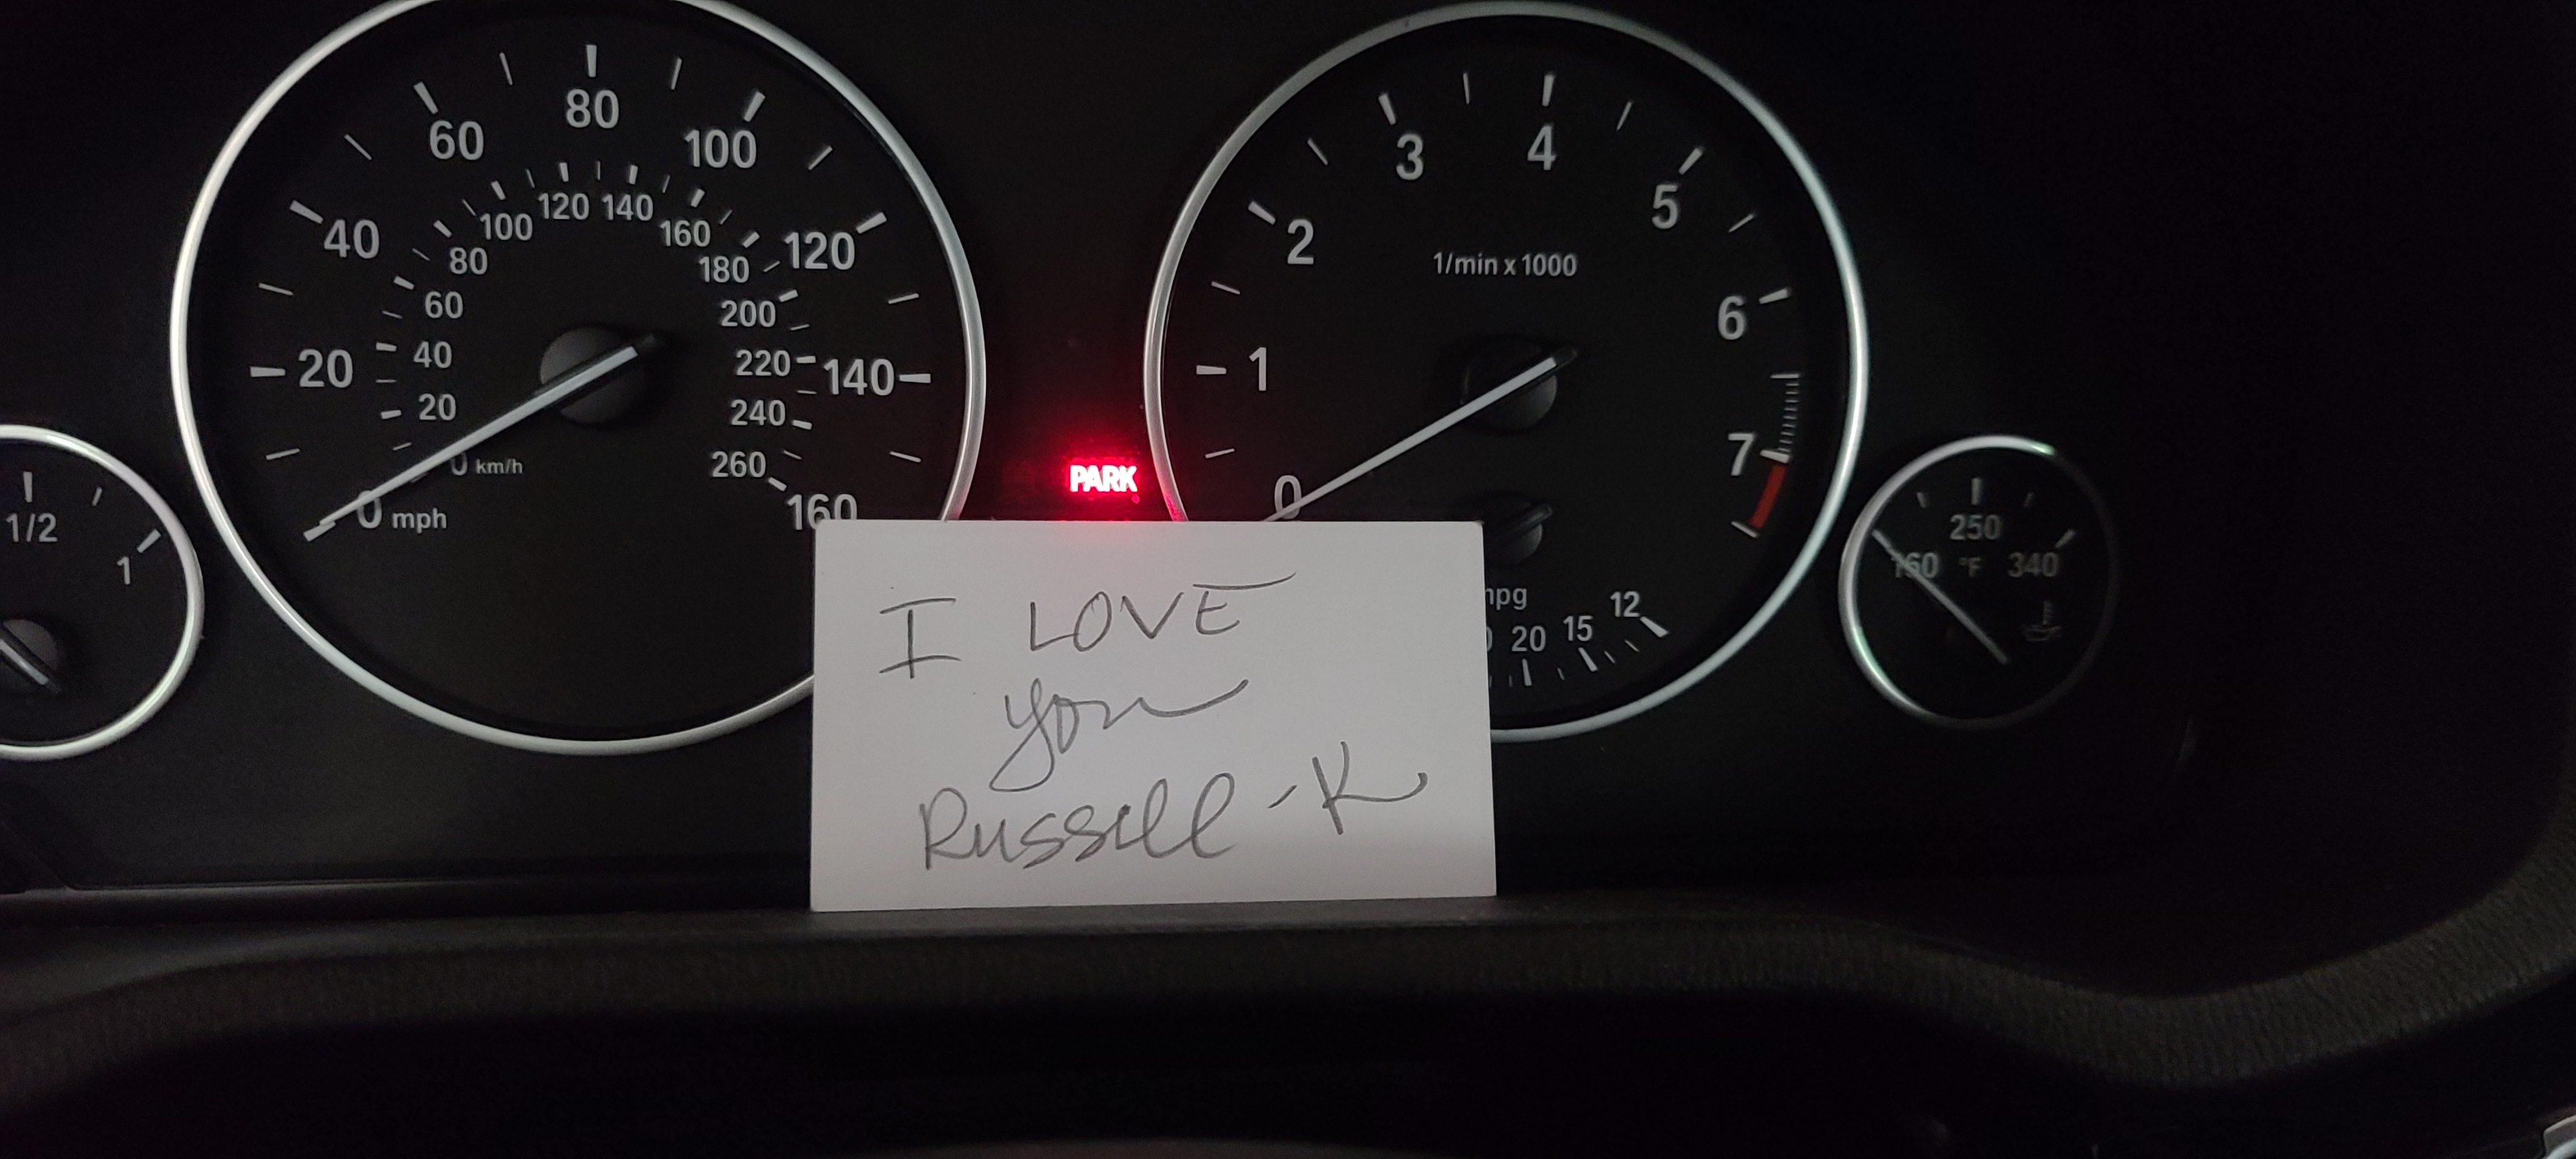 80
60
100
40
120
20
140
160
0 mph
100 120 140 160
80
180
60
200
40
220
20
240
0 km/h
260
1/2
1
PARK
3
4
2
5
1/min x 1000
1
6
7
0
mpg
20 15 12
250
160 °F 340
I LOVE
you
Russell -K